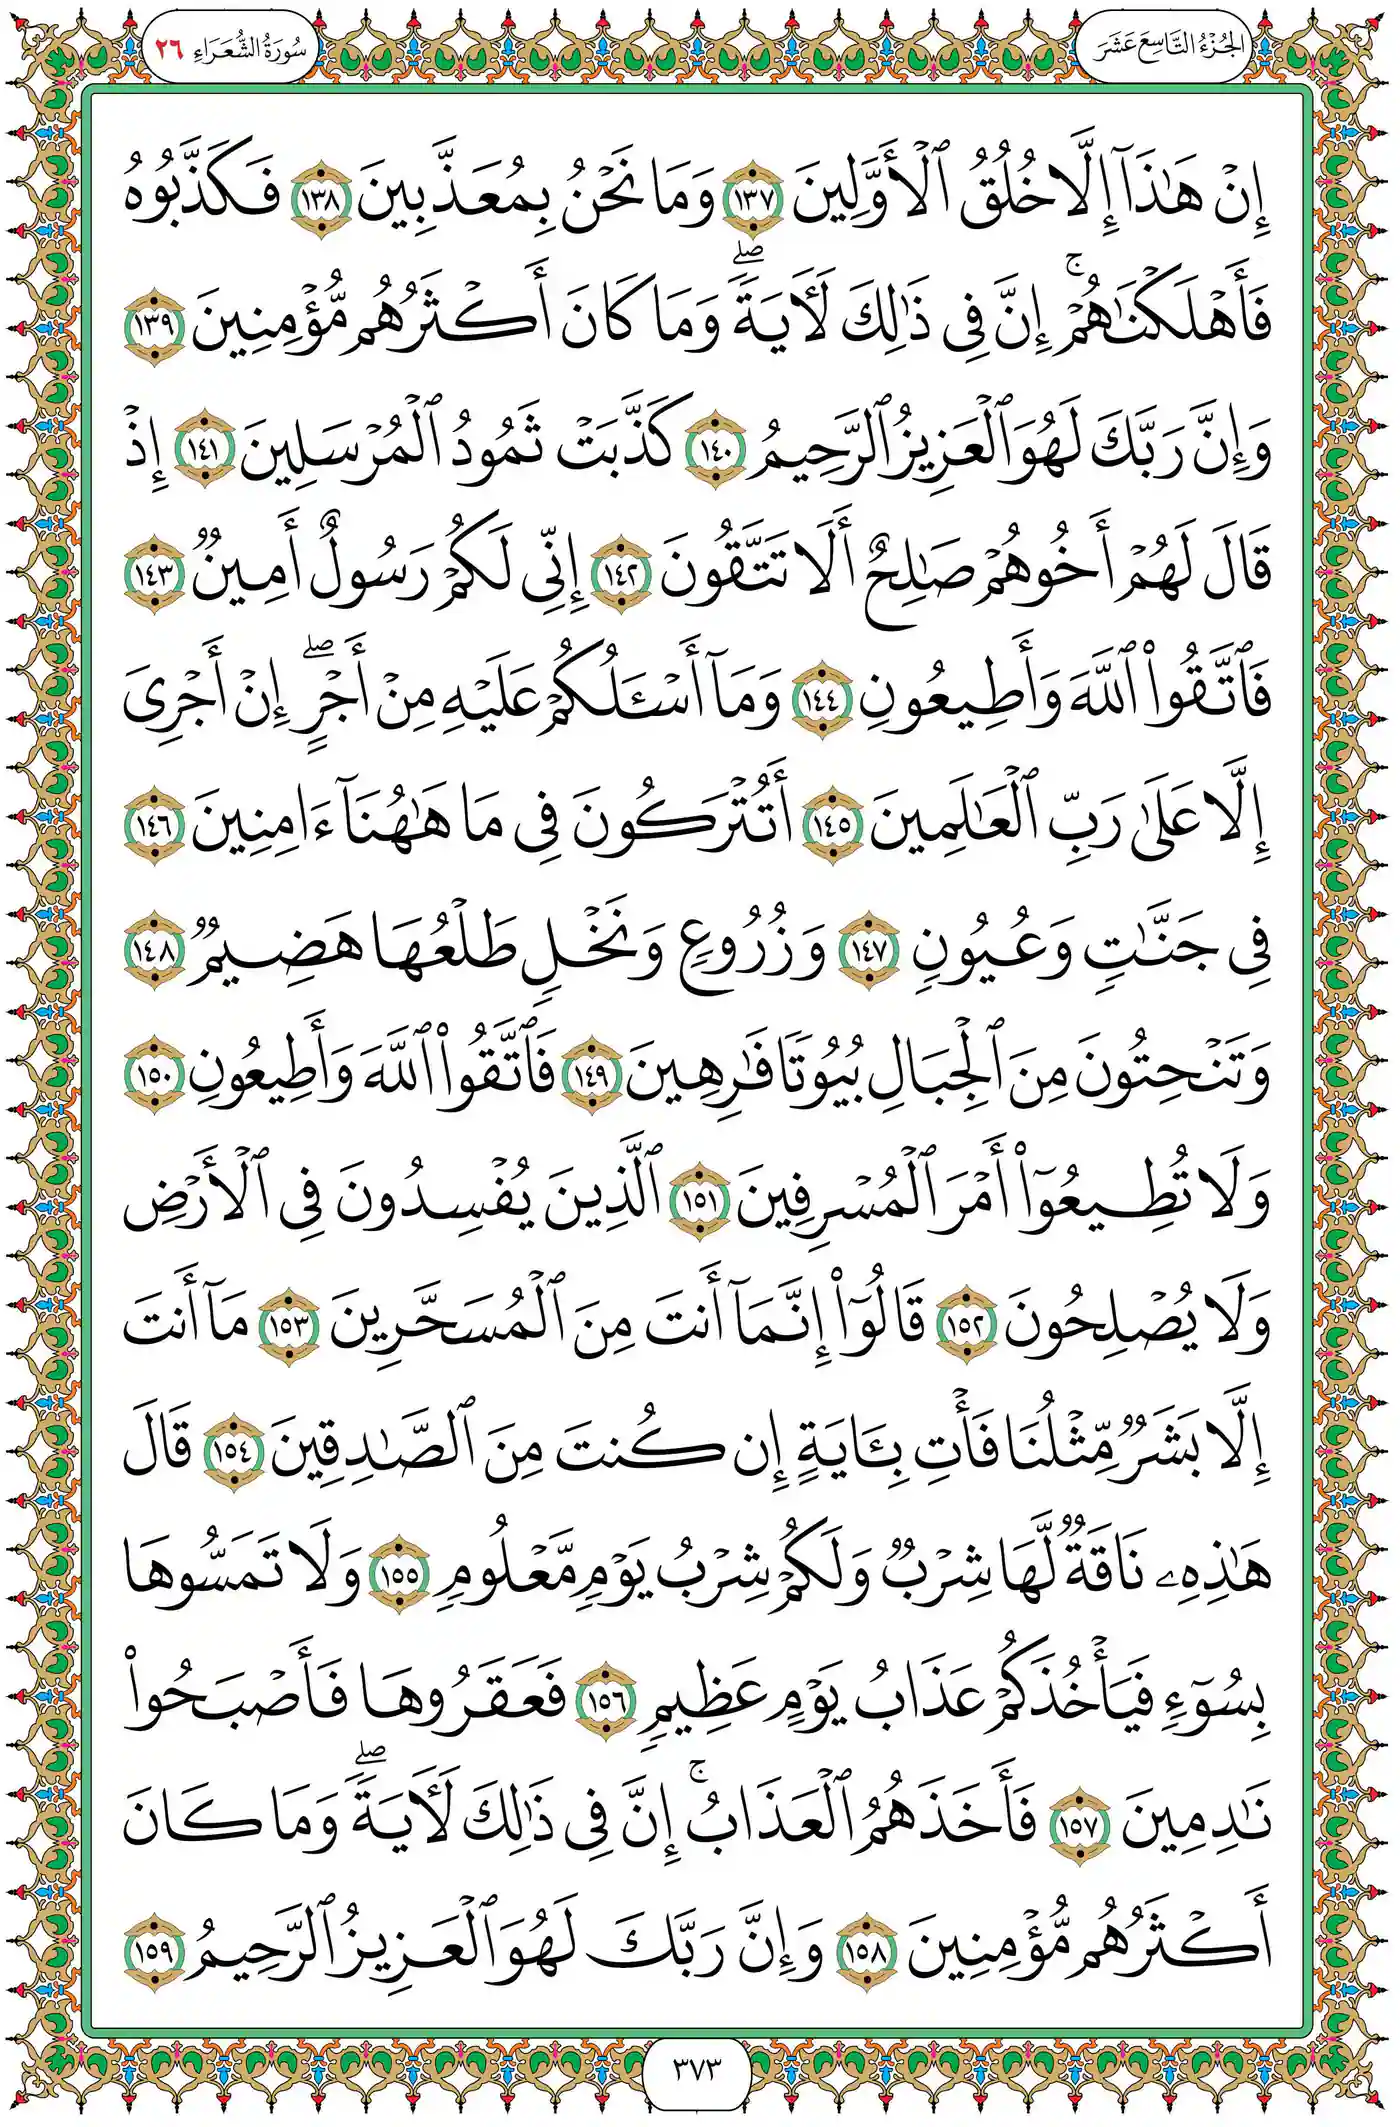 الجُزْءُ التَّاسِعَ عَشَرَ
سُورَةُ الشُّعَرَاءِ ٢٦
إِنۡ هَٰذَآ إِلَّا خُلُقُ ٱلۡأَوَّلِينَ ١٣٧ وَمَا نَحۡنُ بِمُعَذَّبِينَ ١٣٨ فَكَذَّبُوهُ
فَأَهۡلَكۡنَٰهُمۡۚ إِنَّ فِي ذَٰلِكَ لَأٓيَةٗۖ وَمَا كَانَ أَكۡثَرُهُم مُّؤۡمِنِينَ ١٣٩
وَإِنَّ رَبَّكَ لَهُوَ ٱلۡعَزِيزُ ٱلرَّحِيمُ ١٤٠ كَذَّبَتۡ ثَمُودُ ٱلۡمُرۡسَلِينَ ١٤١ إِذۡ
قَالَ لَهُمۡ أَخُوهُمۡ صَٰلِحٌ أَلَا تَتَّقُونَ ١٤٢ إِنِّي لَكُمۡ رَسُولٌ أَمِينٞ ١٤٣
فَٱتَّقُواْ ٱللَّهَ وَأَطِيعُونِ ١٤٤ وَمَآ أَسۡـَٔلُكُمۡ عَلَيۡهِ مِنۡ أَجۡرٍۖ إِنۡ أَجۡرِيَ
إِلَّا عَلَىٰ رَبِّ ٱلۡعَٰلَمِينَ ١٤٥ أَتُتۡرَكُونَ فِي مَا هَٰهُنَآ ءَامِنِينَ ١٤٦
فِي جَنَّٰتٖ وَعُيُونٖ ١٤٧ وَزُرُوعٖ وَنَخۡلٖ طَلۡعُهَا هَضِيمٞ ١٤٨
وَتَنۡحِتُونَ مِنَ ٱلۡجِبَالِ بُيُوتٗا فَٰرِهِينَ ١٤٩ فَٱتَّقُواْ ٱللَّهَ وَأَطِيعُونِ ١٥٠
وَلَا تُطِيعُوٓاْ أَمۡرَ ٱلۡمُسۡرِفِينَ ١٥١ ٱلَّذِينَ يُفۡسِدُونَ فِي ٱلۡأَرۡضِ
وَلَا يُصۡلِحُونَ ١٥٢ قَالُوٓاْ إِنَّمَآ أَنتَ مِنَ ٱلۡمُسَحَّرِينَ ١٥٣ مَآ أَنتَ
إِلَّا بَشَرٞ مِّثۡلُنَا فَأۡتِ بِـَٔايَةٍ إِن كُنتَ مِنَ ٱلصَّٰدِقِينَ ١٥٤ قَالَ
هَٰذِهِۦ نَاقَةٞ لَّهَا شِرۡبٞ وَلَكُمۡ شِرۡبُ يَوۡمٖ مَّعۡلُومٖ ١٥٥ وَلَا تَمَسُّوهَا
بِسُوٓءٖ فَيَأۡخُذَكُمۡ عَذَابُ يَوۡمٍ عَظِيمٖ ١٥٦ فَعَقَرُوهَا فَأَصۡبَحُواْ
نَٰدِمِينَ ١٥٧ فَأَخَذَهُمُ ٱلۡعَذَابُۚ إِنَّ فِي ذَٰلِكَ لَأٓيَةٗۖ وَمَا كَانَ
أَكۡثَرُهُم مُّؤۡمِنِينَ ١٥٨ وَإِنَّ رَبَّكَ لَهُوَ ٱلۡعَزِيزُ ٱلرَّحِيمُ ١٥٩
٣٧٣